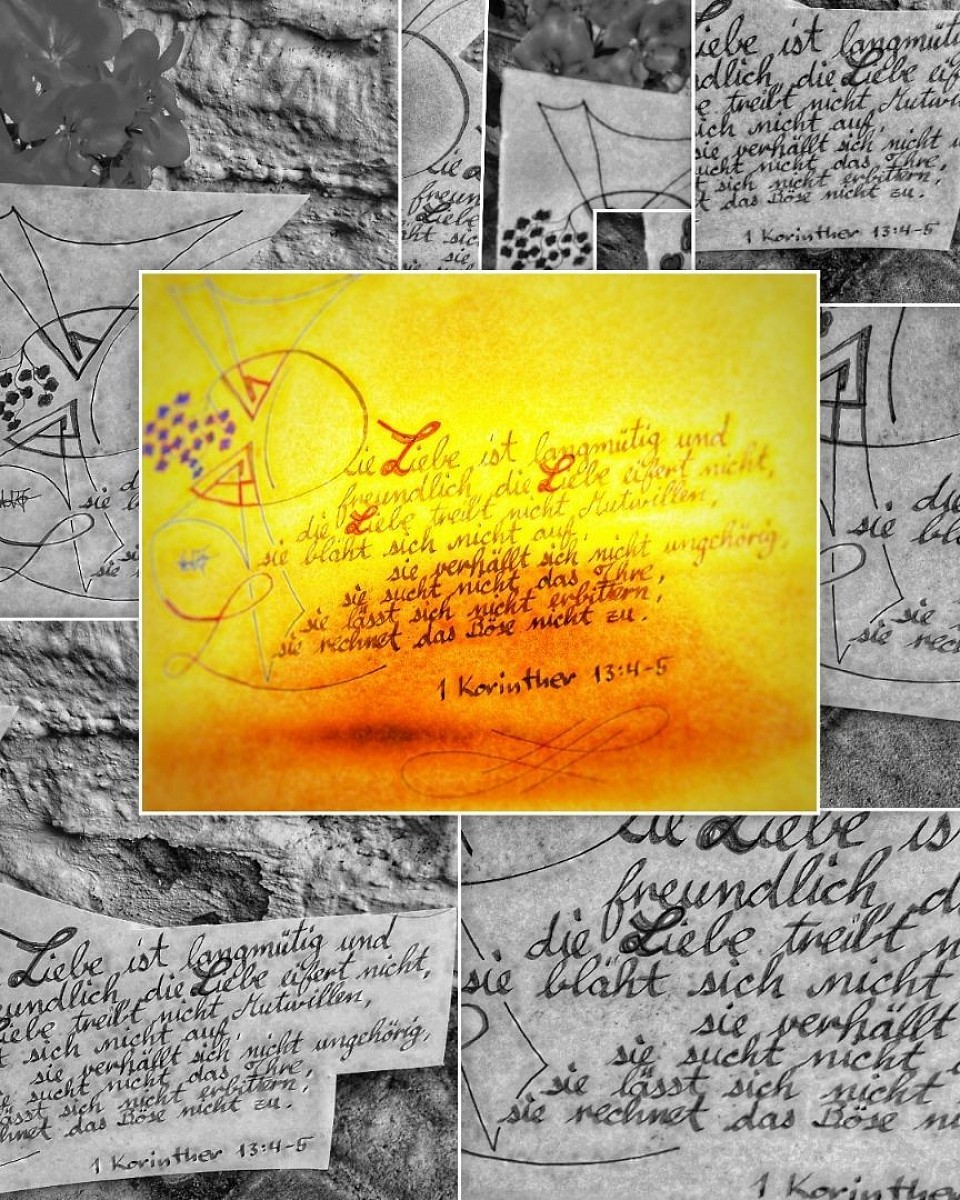 Die
freun
Liebe
iebe ist langmüti
ndlich, die Liebe eif
e treibt nicht Mutwi
ich nicht auf,
sie verhällt sich nicht u
sucht nicht das Ihre,
t sich nicht erbittern,
t das Böse nicht zu.
1 Korinther 13:4-5
Die Liebe ist langmütig und
freundlich, die Liebe eifert nicht,
die Liebe treibt nicht Mutwillen,
sie bläht sich nicht auf,
sie verhällt sich nicht ungehörig,
sie sucht nicht das Ihre,
sie lässt sich nicht erbittern,
sie rechnet das Böse nicht zu.
1 Korinther 13:4-5
sie b
sie
die
sie blä
sie
sie rec
Liebe ist langmütig und
eundlich, die Liebe eifert nicht,
Liebe treibt nicht Mutwillen,
t sich nicht auf,
sie verhällt sich nicht ungehörig,
e sucht nicht das Ihre,
ässt sich nicht erbittern,
hnet das Böse nicht zu.
1 Korinther 13:4-5
Die Liebe is
freundlich, d
die Liebe treibt n
sie bläht sich nicht
sie verhällt
sie sucht nicht
sie lässt sich nicht
sie rechnet das Böse ni
1 Korinthe